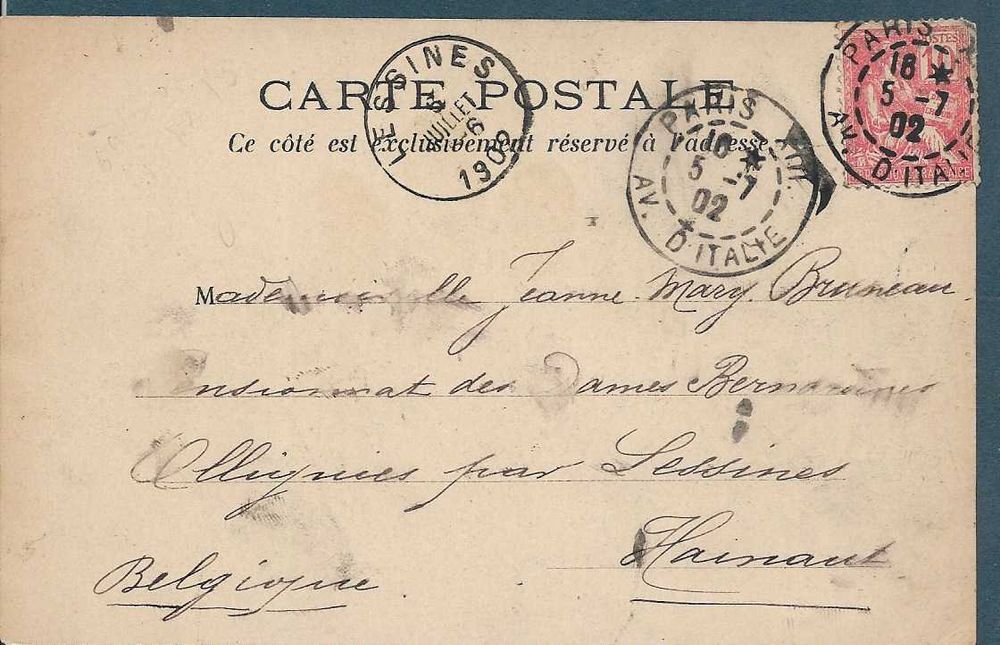 CARTE POSTALE
Ce côté est exclusivement réservé à l'adresse
LESSINES
6
JUILLET
1902
PARIS XIII
18
5 -7
02
AV. D'ITALIE
PARIS
18
5 -7
02
AV. D'ITALIE
POSTES
10
Mademoiselle Jeanne. Mary. Bruneau.
Pensionnat des Dames Bernardines
Ollignies par Lessines
Hainaut
Belgique